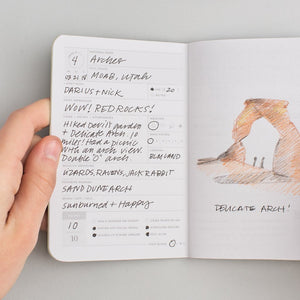 4
Arches
03 21 18
MOAB, Utah
DARIUS + NICK
20
WOW! RED ROCKS!
Hiked Devil's garden
+ Delicate Arch. 10
miles! Had a picnic
with an arch view.
Double "O" arch.
BLM LAND
LIZARDS, RAVENS, JACK RABBIT
SAND DUNE ARCH
sunburned + Happy
10
10
DELICATE ARCH!